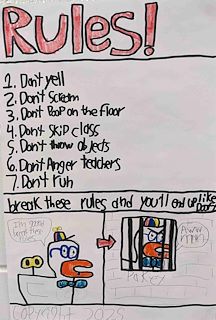 Rules!
1. Don't yell
2. Don't Scream
3. Don't Poop on the floor
4. Don't Skip class
5. Don't throw objects
6. Don't Anger teachers
7. Don't run
break these rules and you'll end up like
I'm gonna break these rules
Aww man
COPYRIGHT 2025